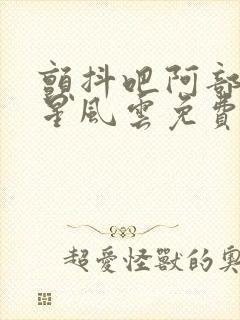 顫抖吧阿部
星風雲免費
超愛怪獸的奧